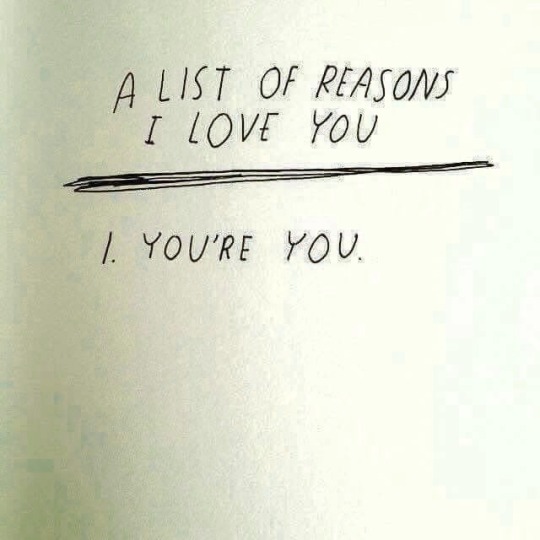 A LIST OF REASONS
I LOVE YOU
1. YOU'RE YOU.